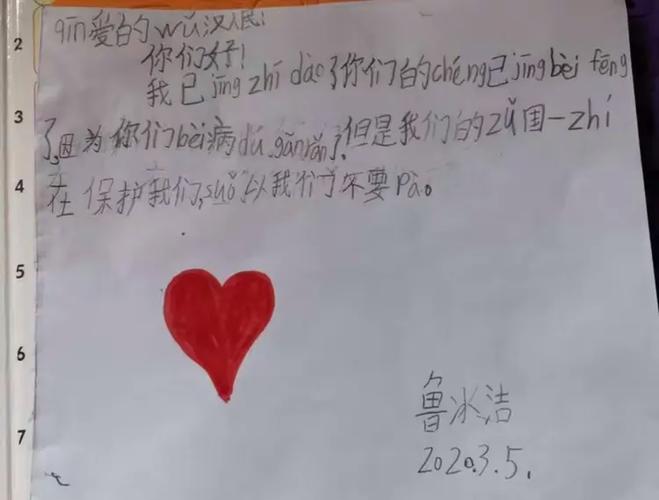 qīn爱的wǔ汉人民！
你们好！
我已jīng zhī dào了你们的chéng已jīng bèi fēng
了,因为你们bèi病dú gǎn rǎn了,但是我们的zǔ国一zhí
在保护我们,suǒ以我们不要pà。
鲁冰洁
2020.3.5.
2
3
4
5
6
7